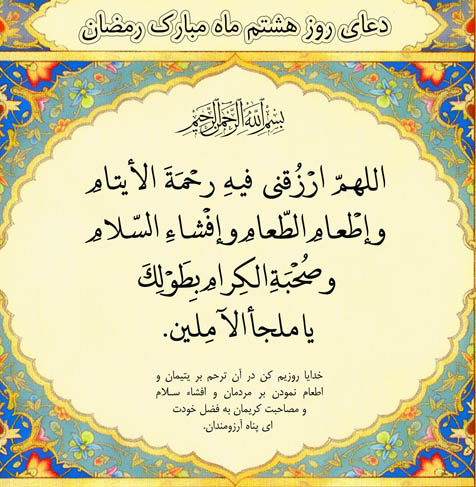 دعای روز هشتم ماه مبارک رمضان
بسم الله الرحمن الرحیم
اللهمّ ارْزُقنی فیهِ رحْمَةَ الأیتامِ
وإطْعامِ الطّعامِ وإفْشاءِ السّلامِ
وصُحْبَةِ الکِرامِ بِطَوْلِکَ
یا ملجأ الآمِلین.
خدایا روزیم کن در آن ترحم بر یتیمان و
اطعام نمودن بر مردمان و افشاء سـلام
و مصاحبت کریمان به فضل خودت
ای پناه آرزومندان.